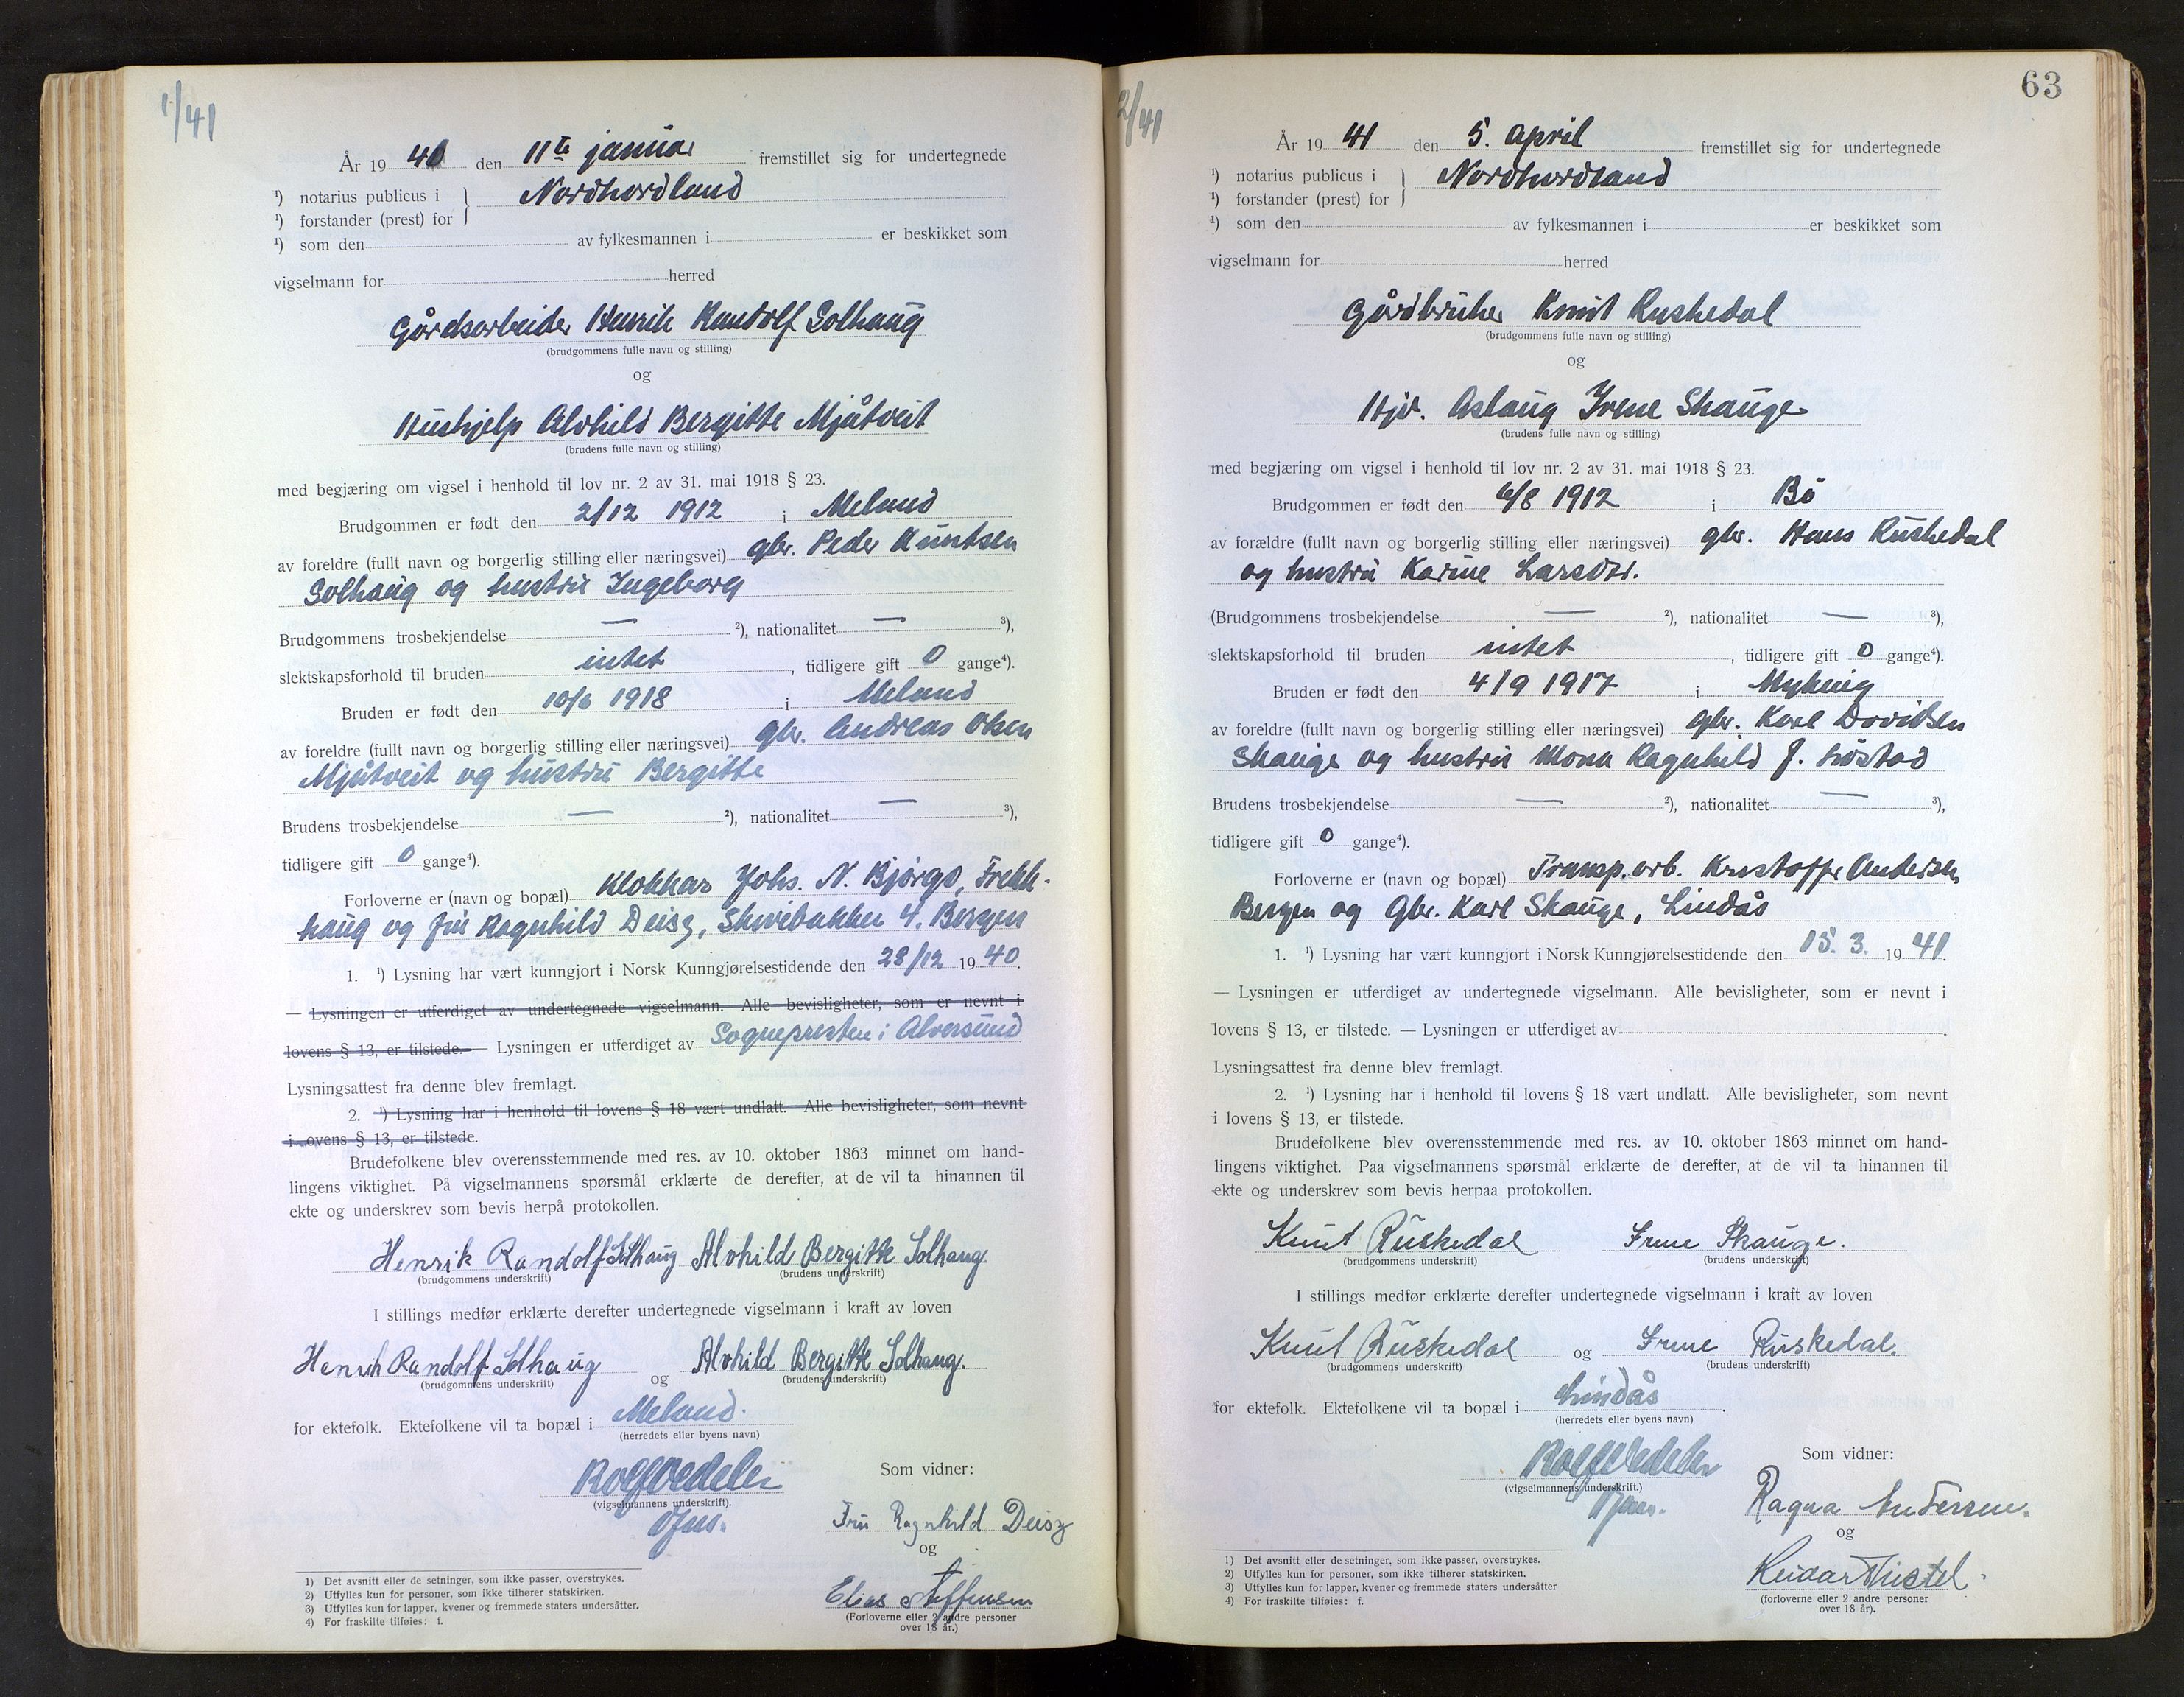 1/41
År 19 40 den 11te januar fremstillet sig for undertegnede
¹) notarius publicus i } Nordhordland
¹) forstander (prest) for
¹) som den av fylkesmannen i er beskikket som
vigselmann for herred
Gårdsarbeider Henrik Randolf Solhaug
(brudgommens fulle navn og stilling)
og
Hushjelp Alvhild Bergitte Mjåtveit
(brudens fulle navn og stilling)
med begjæring om vigsel i henhold til lov nr. 2 av 31. mai 1918 § 23.
Brudgommen er født den 2/12 1912 i Meland
av foreldre (fullt navn og borgerlig stilling eller næringsvei) gbr. Peder Knutsen
Solhaug og hustru Ingeborg
Brudgommens trosbekjendelse — ²), nationalitet — ³),
slektskapsforhold til bruden intet, tidligere gift 0 gange⁴).
Bruden er født den 10/6 1918 i Meland
av foreldre (fullt navn og borgerlig stilling eller næringsvei) gbr. Andreas Olsen
Mjåtveit og hustru Bergitte
Brudens trosbekjendelse — ²), nationalitet — ³),
tidligere gift 0 gange⁴).
Forloverne er (navn og bopæl) Klokkar Johs. N. Bjørgo, Frekk-
haug og fru Ragnhild Deisz, Skivebakken 4. Bergen
1. ¹) Lysning har vært kunngjort i Norsk Kunngjørelsestidende den 28/12 1940.
— Lysningen er utferdiget av undertegnede vigselmann. Alle bevisligheter, som er nevnt i
lovens § 13, er tilstede. — Lysningen er utferdiget av Sognepresten i Alversund
Lysningsattest fra denne blev fremlagt.
2. ¹) Lysning har i henhold til lovens § 18 vært undlatt. Alle bevisligheter, som nevnt
i lovens § 13, er tilstede.
Brudefolkene blev overensstemmende med res. av 10. oktober 1863 minnet om hand-
lingens viktighet. På vigselmannens spørsmål erklærte de derefter, at de vil ta hinannen til
ekte og underskrev som bevis herpå protokollen.
Henrik Randolf Solhaug Alvhild Bergitte Solhaug.
(brudgommens underskrift) (brudens underskrift)
I stillings medfør erklærte derefter undertegnede vigselmann i kraft av loven
Henrik Randolf Solhaug og Alvhild Bergitte Solhaug.
(brudgommens underskrift) (brudens underskrift)
for ektefolk. Ektefolkene vil ta bopæl i Meland.
(herredets eller byens navn)
Rolf Vedeler
(vigselmannens underskrift).
Som vidner:
Fru Ragnhild Deisz
og
Elias Steffensen
(Forloverne eller 2 andre personer
over 18 år.)
1) Det avsnitt eller de setninger, som ikke passer, overstrykes.
2) Utfylles kun for personer, som ikke tilhører statskirken.
3) Utfylles kun for lapper, kvener og fremmede staters undersåtter.
4) For fraskilte tilføies: f.
63
2/41
År 19 41 den 5. april fremstillet sig for undertegnede
¹) notarius publicus i } Nordhordland
¹) forstander (prest) for
¹) som den av fylkesmannen i er beskikket som
vigselmann for herred
Gårdbruker Knut Ruskedal
(brudgommens fulle navn og stilling)
og
Hjv. Aslaug Irene Skauge
(brudens fulle navn og stilling)
med begjæring om vigsel i henhold til lov nr. 2 av 31. mai 1918 § 23.
Brudgommen er født den 6/8 1912 i Bø
av forældre (fullt navn og borgerlig stilling eller næringsvei) gbr. Hans Ruskedal
og hustru Karine Larsdtr.
(Brudgommens trosbekjendelse — ²), nationalitet — ³),
slektskapsforhold til bruden intet, tidligere gift 0 gange⁴).
Bruden er født den 4/9 1917 i Myking
av foreldre (fullt navn og borgerlig stilling eller næringsvei) gbr. Karl Davidsen
Skauge og hustru Mona Ragnhild J.
Brudens trosbekjendelse — ²), nationalitet — ³),
tidligere gift 0 gange⁴).
Forloverne er (navn og bopæl) Transp.arb. Kristoffer Andersen
Bergen og Gbr. Karl Skauge, Lindås
1. ¹) Lysning har vært kunngjort i Norsk Kunngjørelsestidende den 15. 3. 19 41.
— Lysningen er utferdiget av undertegnede vigselmann. Alle bevisligheter, som er nevnt i
lovens § 13, er tilstede. — Lysningen er utferdiget av .
Lysningsattest fra denne blev fremlagt.
2. ¹) Lysning har i henhold til lovens § 18 vært undlatt. Alle bevisligheter, som nevnt
i lovens § 13, er tilstede.
Brudefolkene blev overensstemmende med res. av 10. oktober 1863 minnet om hand-
lingens viktighet. Paa vigselmannens spørsmål erklærte de derefter, at de vil ta hinannen til
ekte og underskrev som bevis herpaa protokollen.
Knut Ruskedal Irene Skauge.
(brudgommens underskrift) (brudens underskrift)
I stillings medfør erklærte derefter undertegnede vigselmann i kraft av loven
Knut Ruskedal og Irene Ruskedal.
(brudgommens underskrift) (brudens underskrift)
for ektefolk. Ektefolkene vil ta bopæl i Lindås.
(herredets eller byens navn)
Rolf Vedeler
(vigselmannens underskrift.)
Som vidner:
Ragna Andersen.
og
Reidar Thistel.
(forloverne eller 2 andre personer
over 18 år).
1) Det avsnitt eller de setninger, som ikke passer, overstrykes.
2) Utfylles kun for personer, som ikke tilhører statskirken.
3) Utfylles kun for lapper, kvener og fremmede staters undersåtter
4) For fraskilte tilføies: f.